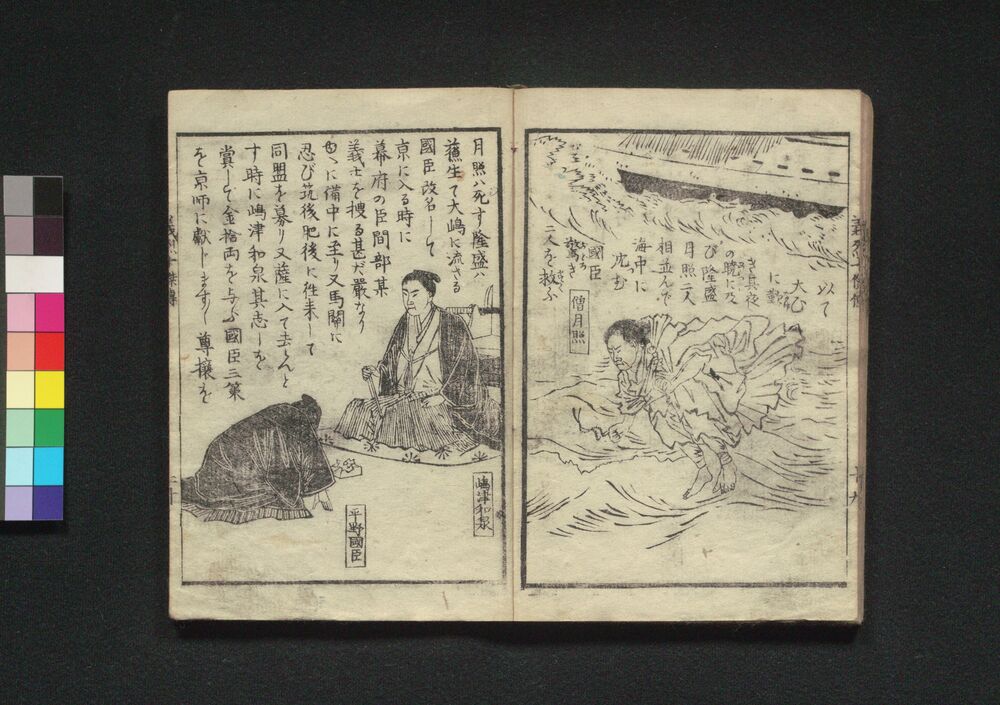 以て
大む
に歎
き其夜
の暁に及
び隆盛
月照二人
相並んで
海中に
沈む
國臣
驚き
二人を救ふ
僧月照
月照ハ死す隆盛ハ
蘓生て大嶋に流さる
國臣改名して
京に入る時に
幕府の臣間部某
義士を捜る甚だ嚴なり
由に備中に至り又馬關に
忍び筑後肥後に往来して
同盟を募り又薩に入て去んと
す時に嶋津和泉其志しを
賞して金拾両を与ふ國臣三策
を京師に獻じます〳〵尊攘を
嶋津和泉
平野國臣